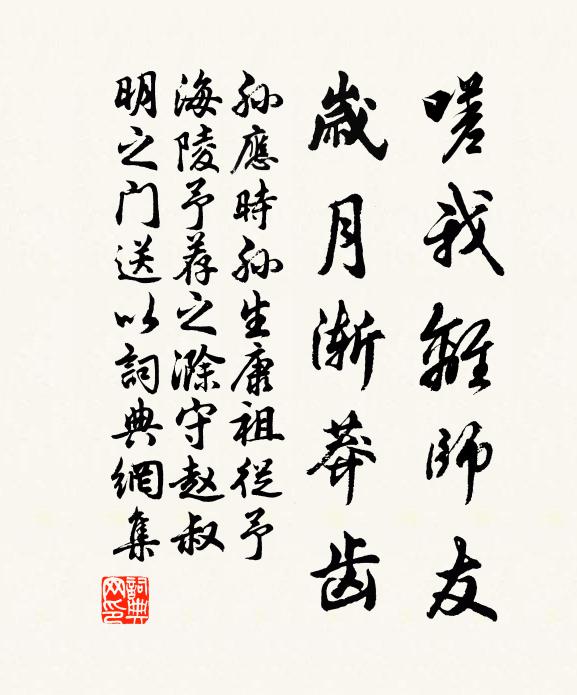 嗟我離師友
歲月漸莽齒
孙應時孙生康祖從予
海陵予荐之滁守赵叔
明之门送以詞典網集
詞典网印